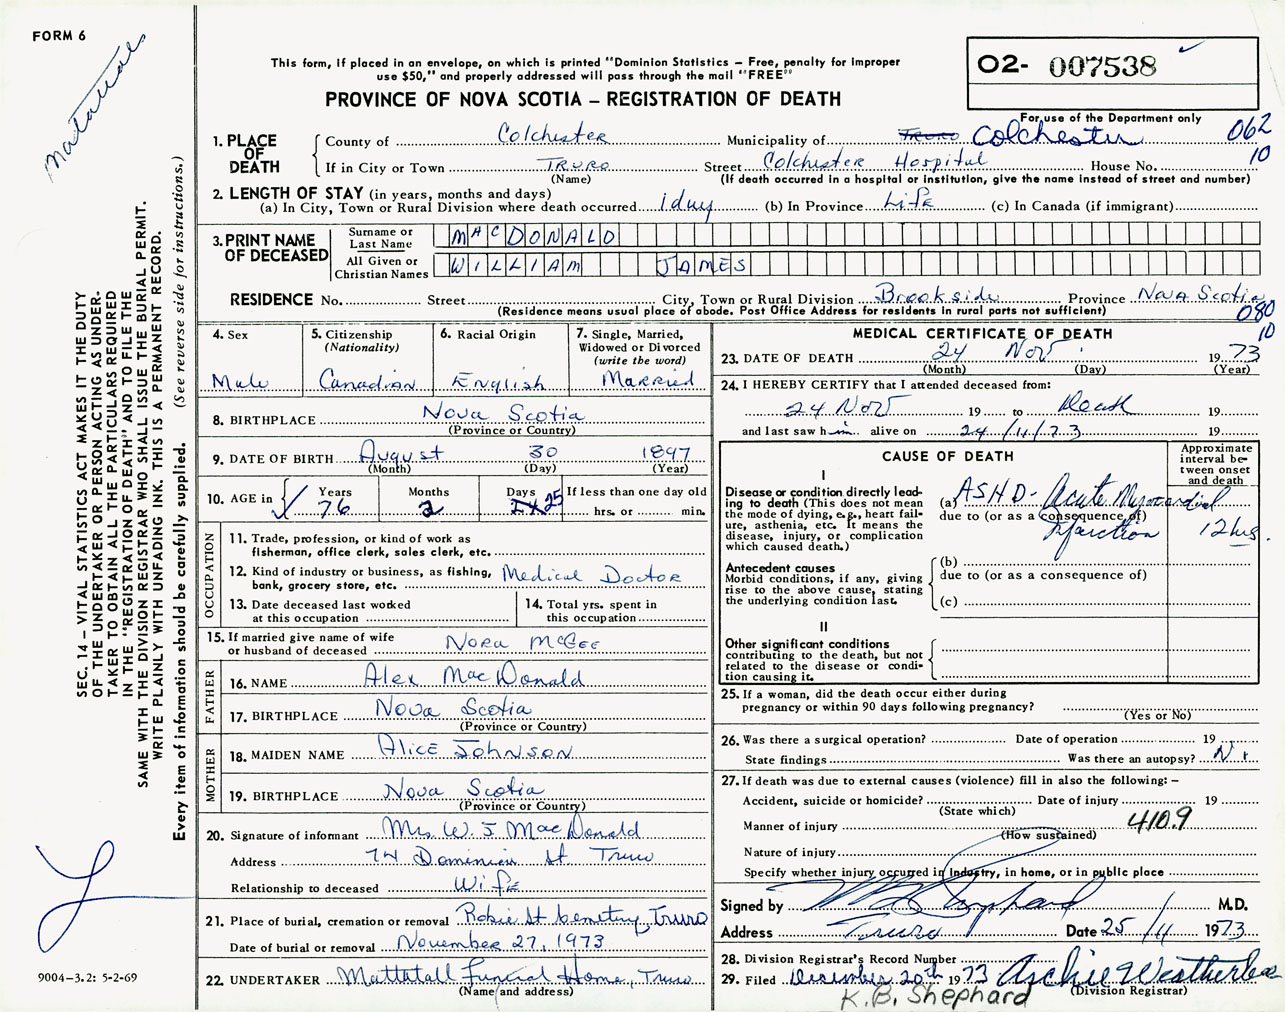 FORM 6
This form, if placed in an envelope, on which is printed "Dominion Statistics – Free, penalty for improper
use $50," and properly addressed will pass through the mail "FREE"
PROVINCE OF NOVA SCOTIA – REGISTRATION OF DEATH
O2- 007538
For use of the Department only
062
10
1. PLACE OF DEATH
County of Colchester Municipality of Truro Colchester
If in City or Town Truro Street Colchester Hospital House No.
(Name) (If death occurred in a hospital or institution, give the name instead of street and number)
2. LENGTH OF STAY (in years, months and days)
(a) In City, Town or Rural Division where death occurred 1 day (b) In Province Life (c) In Canada (if immigrant)
3. PRINT NAME OF DECEASED
Surname or Last Name MACDONALD
All Given or Christian Names WILLIAM JAMES
RESIDENCE No. Street City, Town or Rural Division Brookside Province Nova Scotia
(Residence means usual place of abode. Post Office Address for residents in rural parts not sufficient)
080
10
4. Sex
Male
5. Citizenship
(Nationality)
Canadian
6. Racial Origin
English
7. Single, Married,
Widowed or Divorced
(write the word)
Married
8. BIRTHPLACE Nova Scotia
(Province or Country)
9. DATE OF BIRTH August 30 1897
(Month) (Day) (Year)
10. AGE in Years Months Days If less than one day old
76 2 25 hrs. or min.
OCCUPATION
11. Trade, profession, or kind of work as
fisherman, office clerk, sales clerk, etc.
12. Kind of industry or business, as fishing,
bank, grocery store, etc. Medical Doctor
13. Date deceased last worked
at this occupation
14. Total yrs. spent in
this occupation
15. If married give name of wife
or husband of deceased Nora McGee
FATHER
16. NAME Alex MacDonald
17. BIRTHPLACE Nova Scotia
(Province or Country)
MOTHER
18. MAIDEN NAME Alice Johnson
19. BIRTHPLACE Nova Scotia
(Province or Country)
20. Signature of informant Mrs W. J MacDonald
Address 74 Dominion St Truro
Relationship to deceased Wife
21. Place of burial, cremation or removal Robie St Cemetery, Truro
Date of burial or removal November 27, 1973
22. UNDERTAKER Mattatall Funeral Home, Truro
(Name and address)
MEDICAL CERTIFICATE OF DEATH
23. DATE OF DEATH 24 Nov 1973
(Month) (Day) (Year)
24. I HEREBY CERTIFY that I attended deceased from:
24 Nov 19 to Death 19
and last saw him alive on 24/11/73 19
CAUSE OF DEATH
Approximate interval between onset and death
I
Disease or condition directly leading to death (This does not
mean the mode of dying, e.g., heart failure, asthenia, etc. It means the
disease, injury, or complication
which caused death.)
(a) ASHD - Acute Myocardial
due to (or as a consequence of)
Infarction 12 hrs.
Antecedent causes
Morbid conditions, if any, giving
rise to the above cause, stating
the underlying condition last.
(b)
due to (or as a consequence of)
(c)
II
Other significant conditions
contributing to the death, but not
related to the disease or condition causing it.
25. If a woman, did the death occur either during
pregnancy or within 90 days following pregnancy?
(Yes or No)
26. Was there a surgical operation? Date of operation 19
State findings Was there an autopsy?
27. If death was due to external causes (violence) fill in also the following: –
Accident, suicide or homicide? Date of injury 19
(State which)
Manner of injury 410.9
(How sustained)
Nature of injury
Specify whether injury occurred in industry, in home, or in public place
Signed by M.D.
Address Truro Date 25/11 1973
28. Division Registrar's Record Number
29. Filed December 20th 1973 Archie Weatherbee
(Division Registrar)
K.B. Shephard
SEC. 14 – VITAL STATISTICS ACT MAKES IT THE DUTY
OF THE UNDERTAKER OR PERSON ACTING AS UNDER-
TAKER TO OBTAIN ALL THE PARTICULARS REQUIRED
IN THE "REGISTRATION OF DEATH" AND TO FILE THE
SAME WITH THE DIVISION REGISTRAR WHO SHALL ISSUE THE BURIAL PERMIT.
WRITE PLAINLY WITH UNFADING INK. THIS IS A PERMANENT RECORD.
Every item of information should be carefully supplied. (See reverse side for instructions.)
9004-3.2: 5-2-69